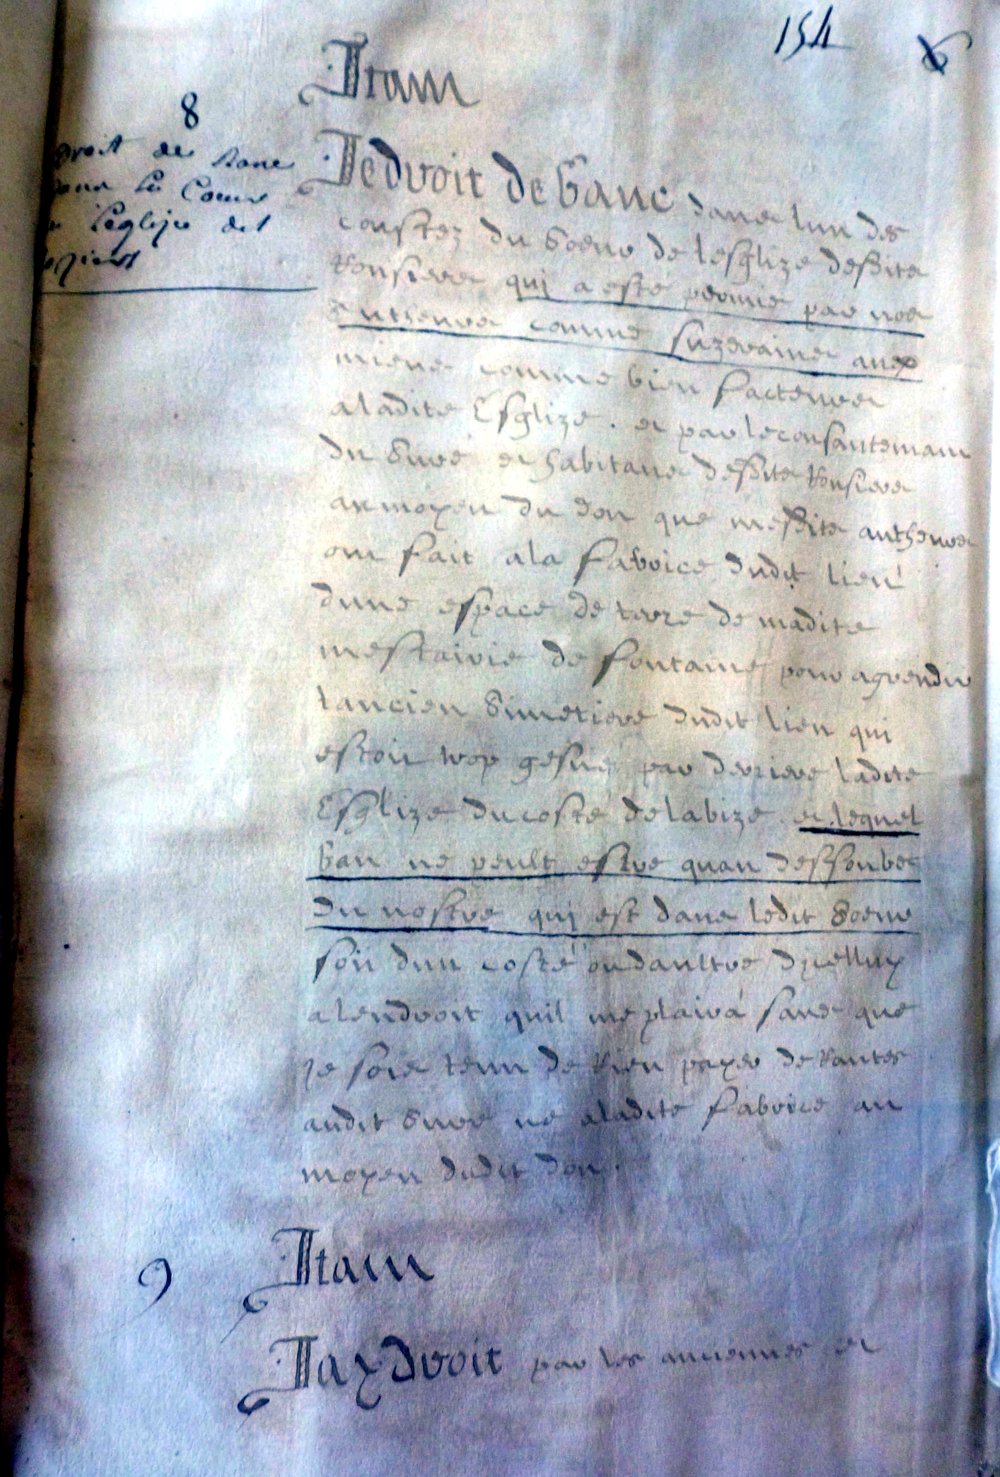 154
6
Itam
8
droit de banc
dans le Coeur
de l'eglise de
Jedroit de banc dans lun des
coustez du Coeur de lesglize desdite
Ronsiere qui a esté permis par nos
Anthenés comme suzerains
miens comme bien facteurs
aladite Esglize . et par leconsantemant
du Curé et habitans desdite Ronsiere
au moyen du don que mesdits
ont fait ala fabrice dudit lieu
dune espace de terre de madite
mestairie de fontaine pour agrendir
lancien Simetiere dudit lieu qui
estoit trop par derriere ladite
Esglize ducosté delabize et lequel
ban ne peult estre quan dessoubz
du nostre qui est dans ledit Coeur
soit dun costé ou daultre dycelluy
alendroit quil me plaira sans que
je sois tenu de rien payer de rantes
audit Curé ne aladite fabrice au
moyen dudit don .
9
Itam
Jay droit par les anciennes et